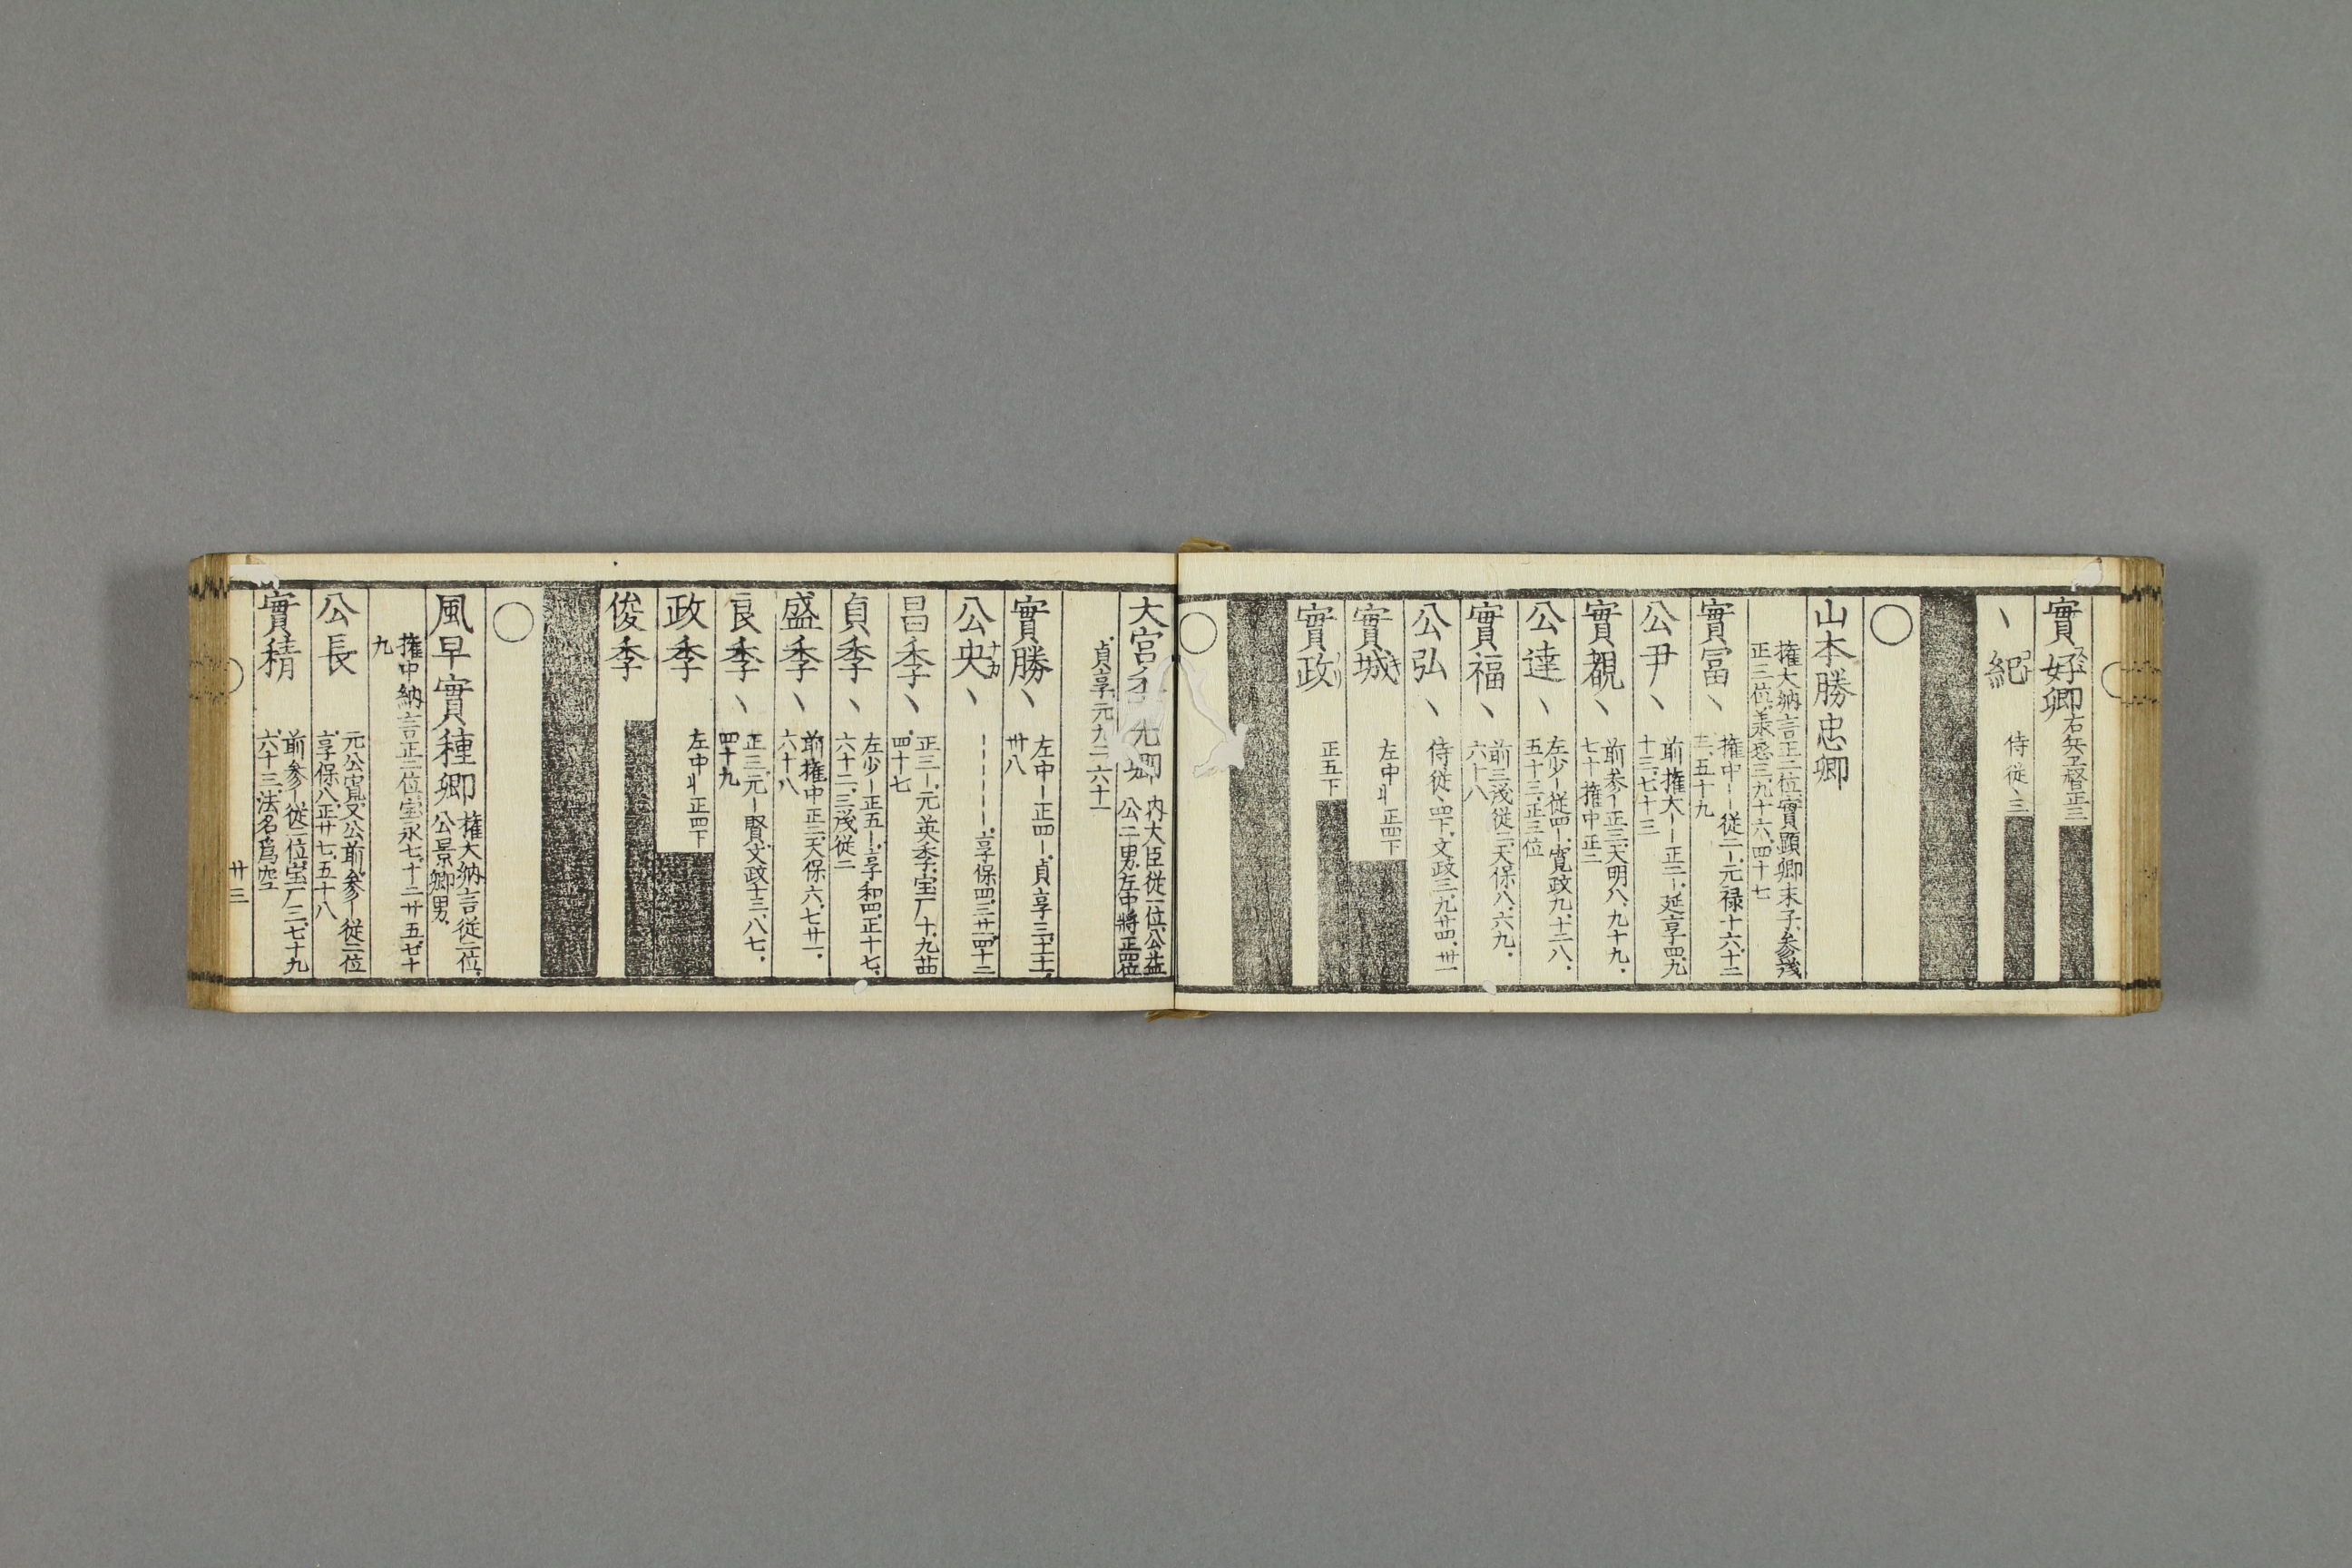 實好卿 右兵卫督正三
丶紀 侍従丶三
〇
山本勝忠卿
権大納言正二位實顯卿末子参議
正三位承應三九十六四十七
實冨丶 権中——従二—元禄十六十二
三五十九
公尹丶 前権大——正二—延享四九
十三七十三
實覩丶 前参—正三天明八九十九
七十権中正二
公達丶 左少—従四—寛政九十二八
五十三正三位
實福丶 前三茂従二天保八六九
六十八
公弘丶 侍従丶四下文政三九廿四卅一
實城 左中丬正四下
實政 正五下
〇
大宮季光卿 内大臣従一位公益
公二男左中將正四位
貞享元九二六十一
實勝丶 左中—正四—貞享三十二
卅八
公央丶 —————享保四三廿四十二
昌季丶 正三—元英季宝厂十九廿
四十七
貞季丶 左少—正五—享和四正十七
六十二三茂従二
盛季丶 前権中正二天保六七廿一
六十八
良季丶 正三元—賢文政十三八七
四十九
政季 左中丬正四下
俊季
〇
風早實種卿 権大納言従二位
公景卿男
権中納言正二位宝永七十二廿五七十
九
公長 元公寛又公前参—従二位
享保八正廿七五十八
實積 前参—従二位宝厂三七十九
六十三法名爲空
廿三